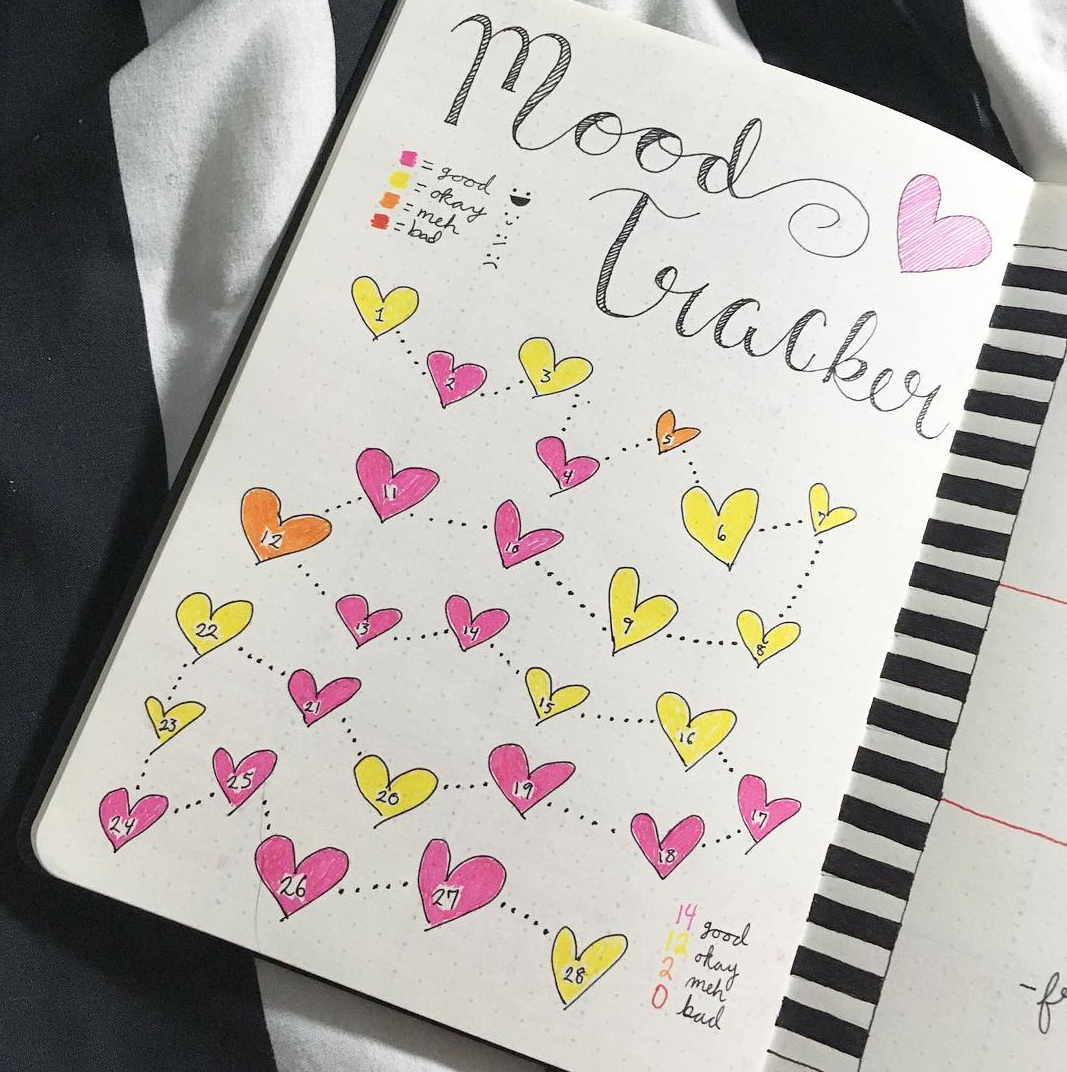 Mood
Tracker
= good
= okay
= meh
= bad
1
2
3
4
5
6
7
8
9
10
11
12
13
14
15
16
17
18
19
20
21
22
23
24
25
26
27
28
14 good
12 okay
2 meh
0 bad